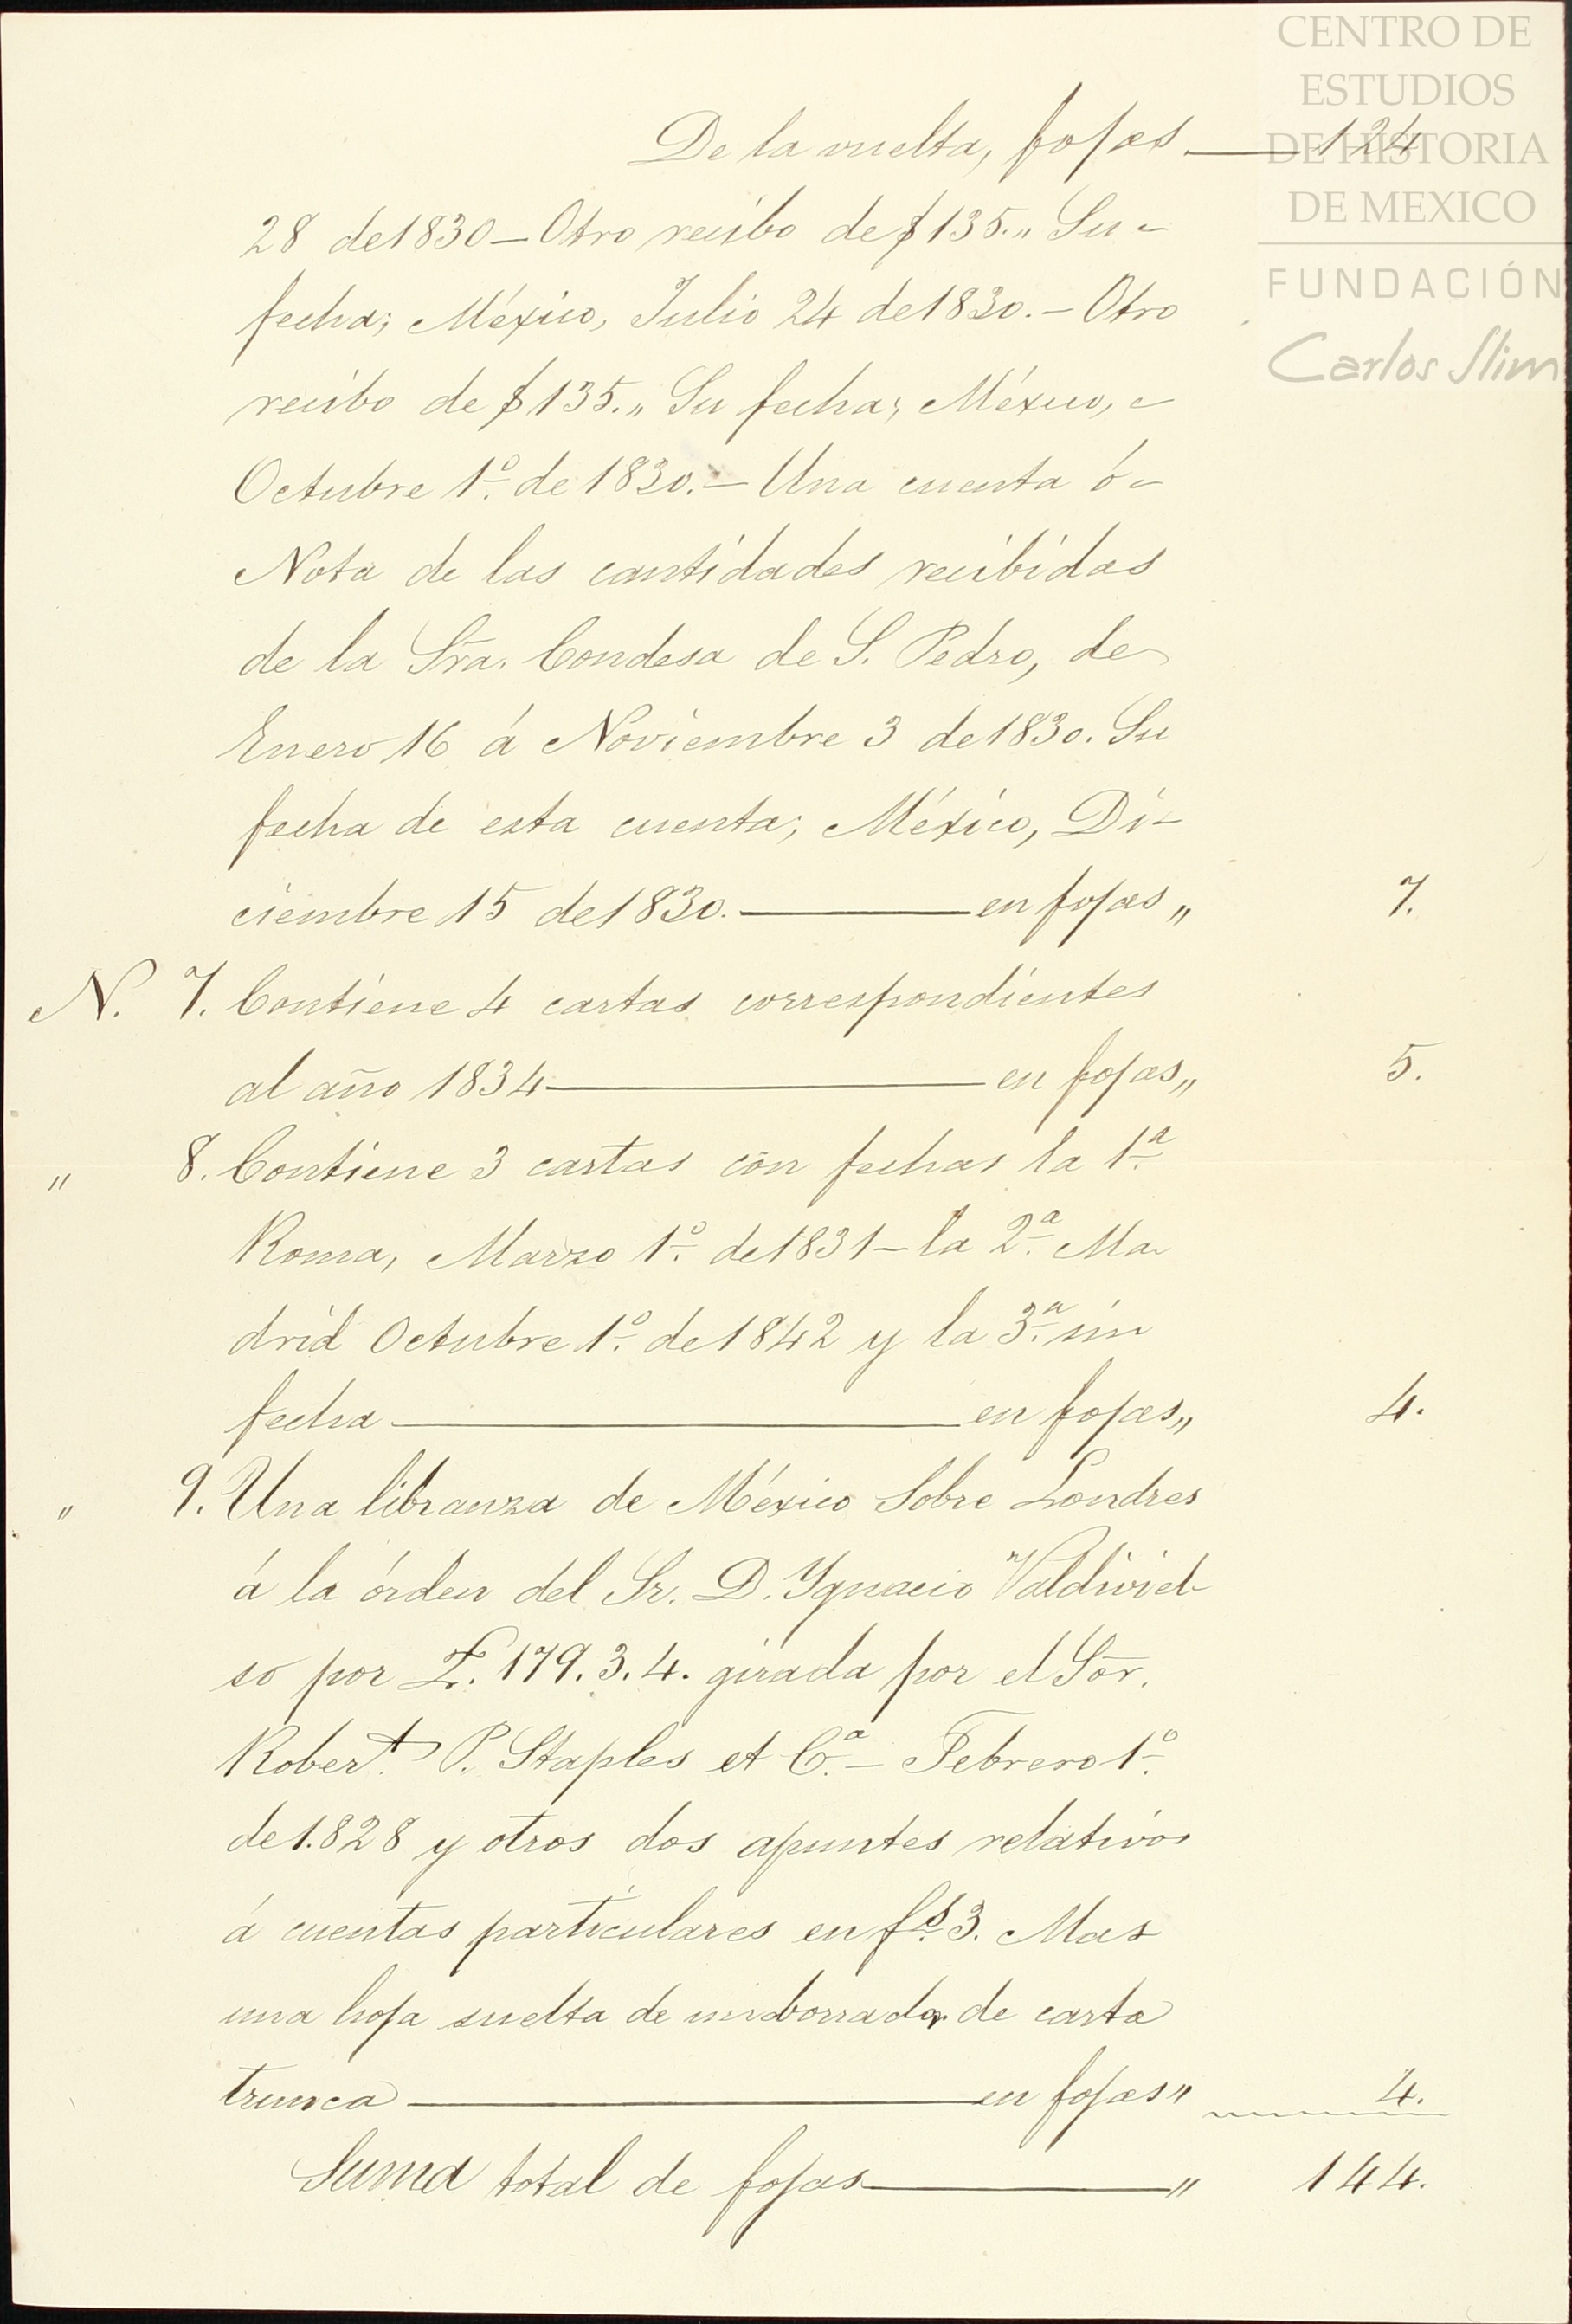 CENTRO DE
ESTUDIOS
DE HISTORIA
DE MEXICO
FUNDACIÓN
Carlos Slim
De la vuelta, fojas — 124
28 de 1830 — Otro recibo de $135.„ Su -
fecha; México, Julio 24 de 1830. - Otro
recibo de $135.„ Su fecha; México, -
Octubre 1º. de 1830. - Una cuenta ó -
Nota de las cantidades recibidas
de la Sra. Condesa de S. Pedro, de
Enero 16 á Noviembre 3 de 1830. Su
fecha de esta cuenta; México, Di-
ciembre 15 de 1830. — en fojas „ 7.
N. 7. Contiene 4 cartas correspondientes
al año 1834 — en fojas „ 5.
„ 8. Contiene 3 cartas con fechas la 1ª.
Roma, Marzo 1º. de 1831 - la 2ª. Ma
drid Octubre 1º. de 1842 y la 3ª. sin
fecha — en fojas „ 4.
„ 9. Una libranza de México Sobre Londres
á la órden del Sr. D. Ygnacio Valdiviel-
so por £. 179. 3. 4. girada por el Sor.
Robert. P. Staples et Cª. - Febrero 1º.
de 1.828 y otros dos apuntes relativos
á cuentas particulares en fs. 3. Mas
una hoja suelta de un borrador de carta
trunca — en fojas „ 4.
Suma total de fojas — „ 144.